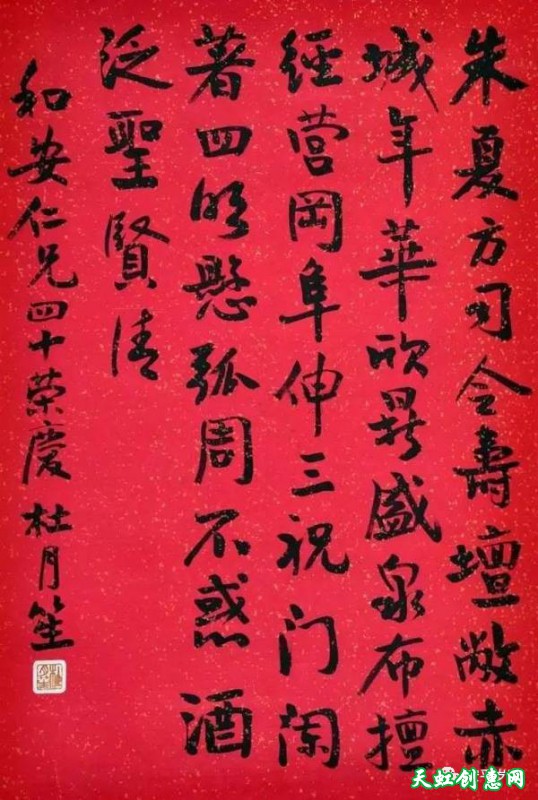 朱夏方司令壽壇敞赤
城年華欣鼎盛泉布擅
經营岡阜伸三祝门
著四明懸弧周不惑酒
泛聖賢清
和安仁兄四十荣慶 杜月笙
天虹创意网